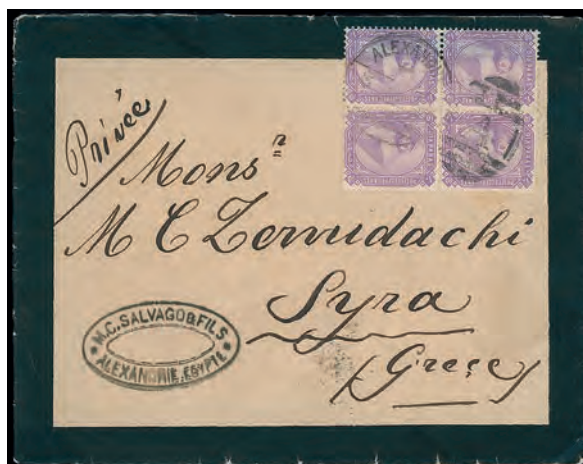 ALEXAND
Privée
Mons<sup>r</sup>
M C Zermidachi
Syra
Grece
M.C. SALVAGO & FILS
ALEXANDRIE, EGYPTE